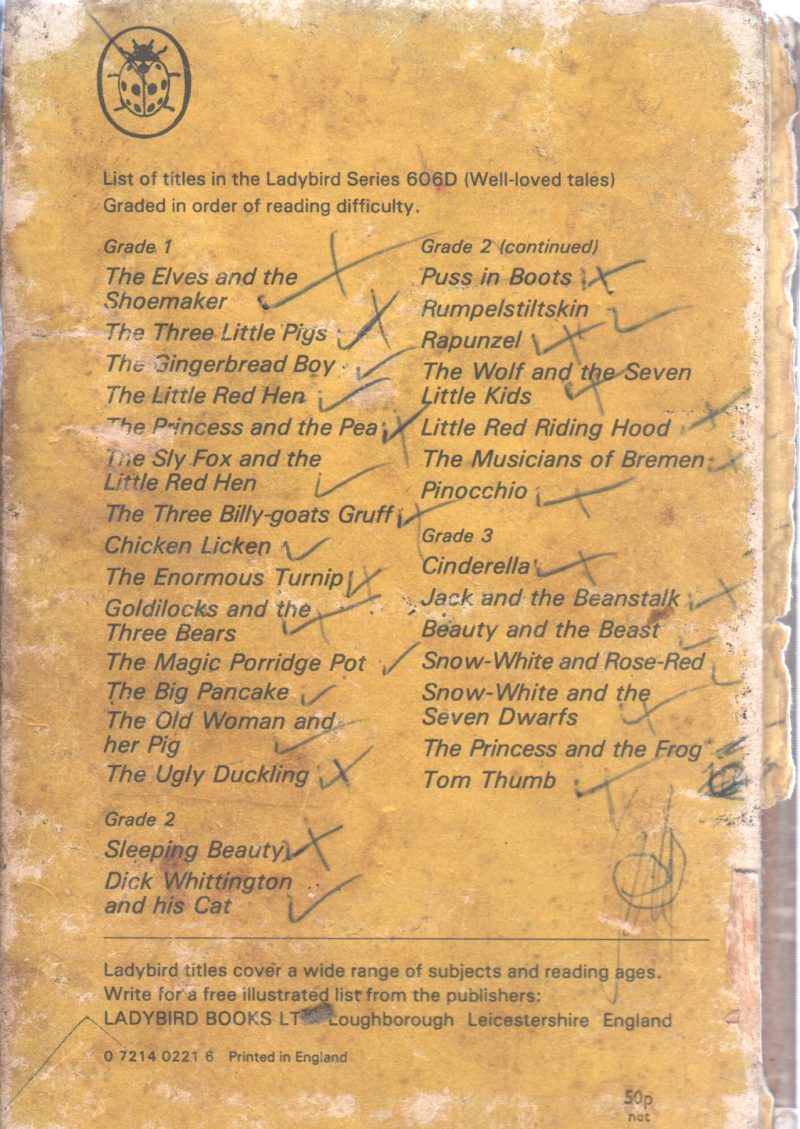 List of titles in the Ladybird Series 606D (Well-loved tales)
Graded in order of reading difficulty.
Grade 1
The Elves and the
Shoemaker
The Three Little Pigs
The Gingerbread Boy
The Little Red Hen
The Princess and the Pea
The Sly Fox and the
Little Red Hen
The Three Billy-goats Gruff
Chicken Licken
The Enormous Turnip
Goldilocks and the
Three Bears
The Magic Porridge Pot
The Big Pancake
The Old Woman and
her Pig
The Ugly Duckling
Grade 2
Sleeping Beauty
Dick Whittington
and his Cat
Grade 2 (continued)
Puss in Boots
Rumpelstiltskin
Rapunzel
The Wolf and the Seven
Little Kids
Little Red Riding Hood
The Musicians of Bremen
Pinocchio
Grade 3
Cinderella
Jack and the Beanstalk
Beauty and the Beast
Snow-White and Rose-Red
Snow-White and the
Seven Dwarfs
The Princess and the Frog
Tom Thumb
Ladybird titles cover a wide range of subjects and reading ages.
Write for a free illustrated list from the publishers:
LADYBIRD BOOKS LT Loughborough Leicestershire England
0 7214 0221 6 Printed in England
50p
net